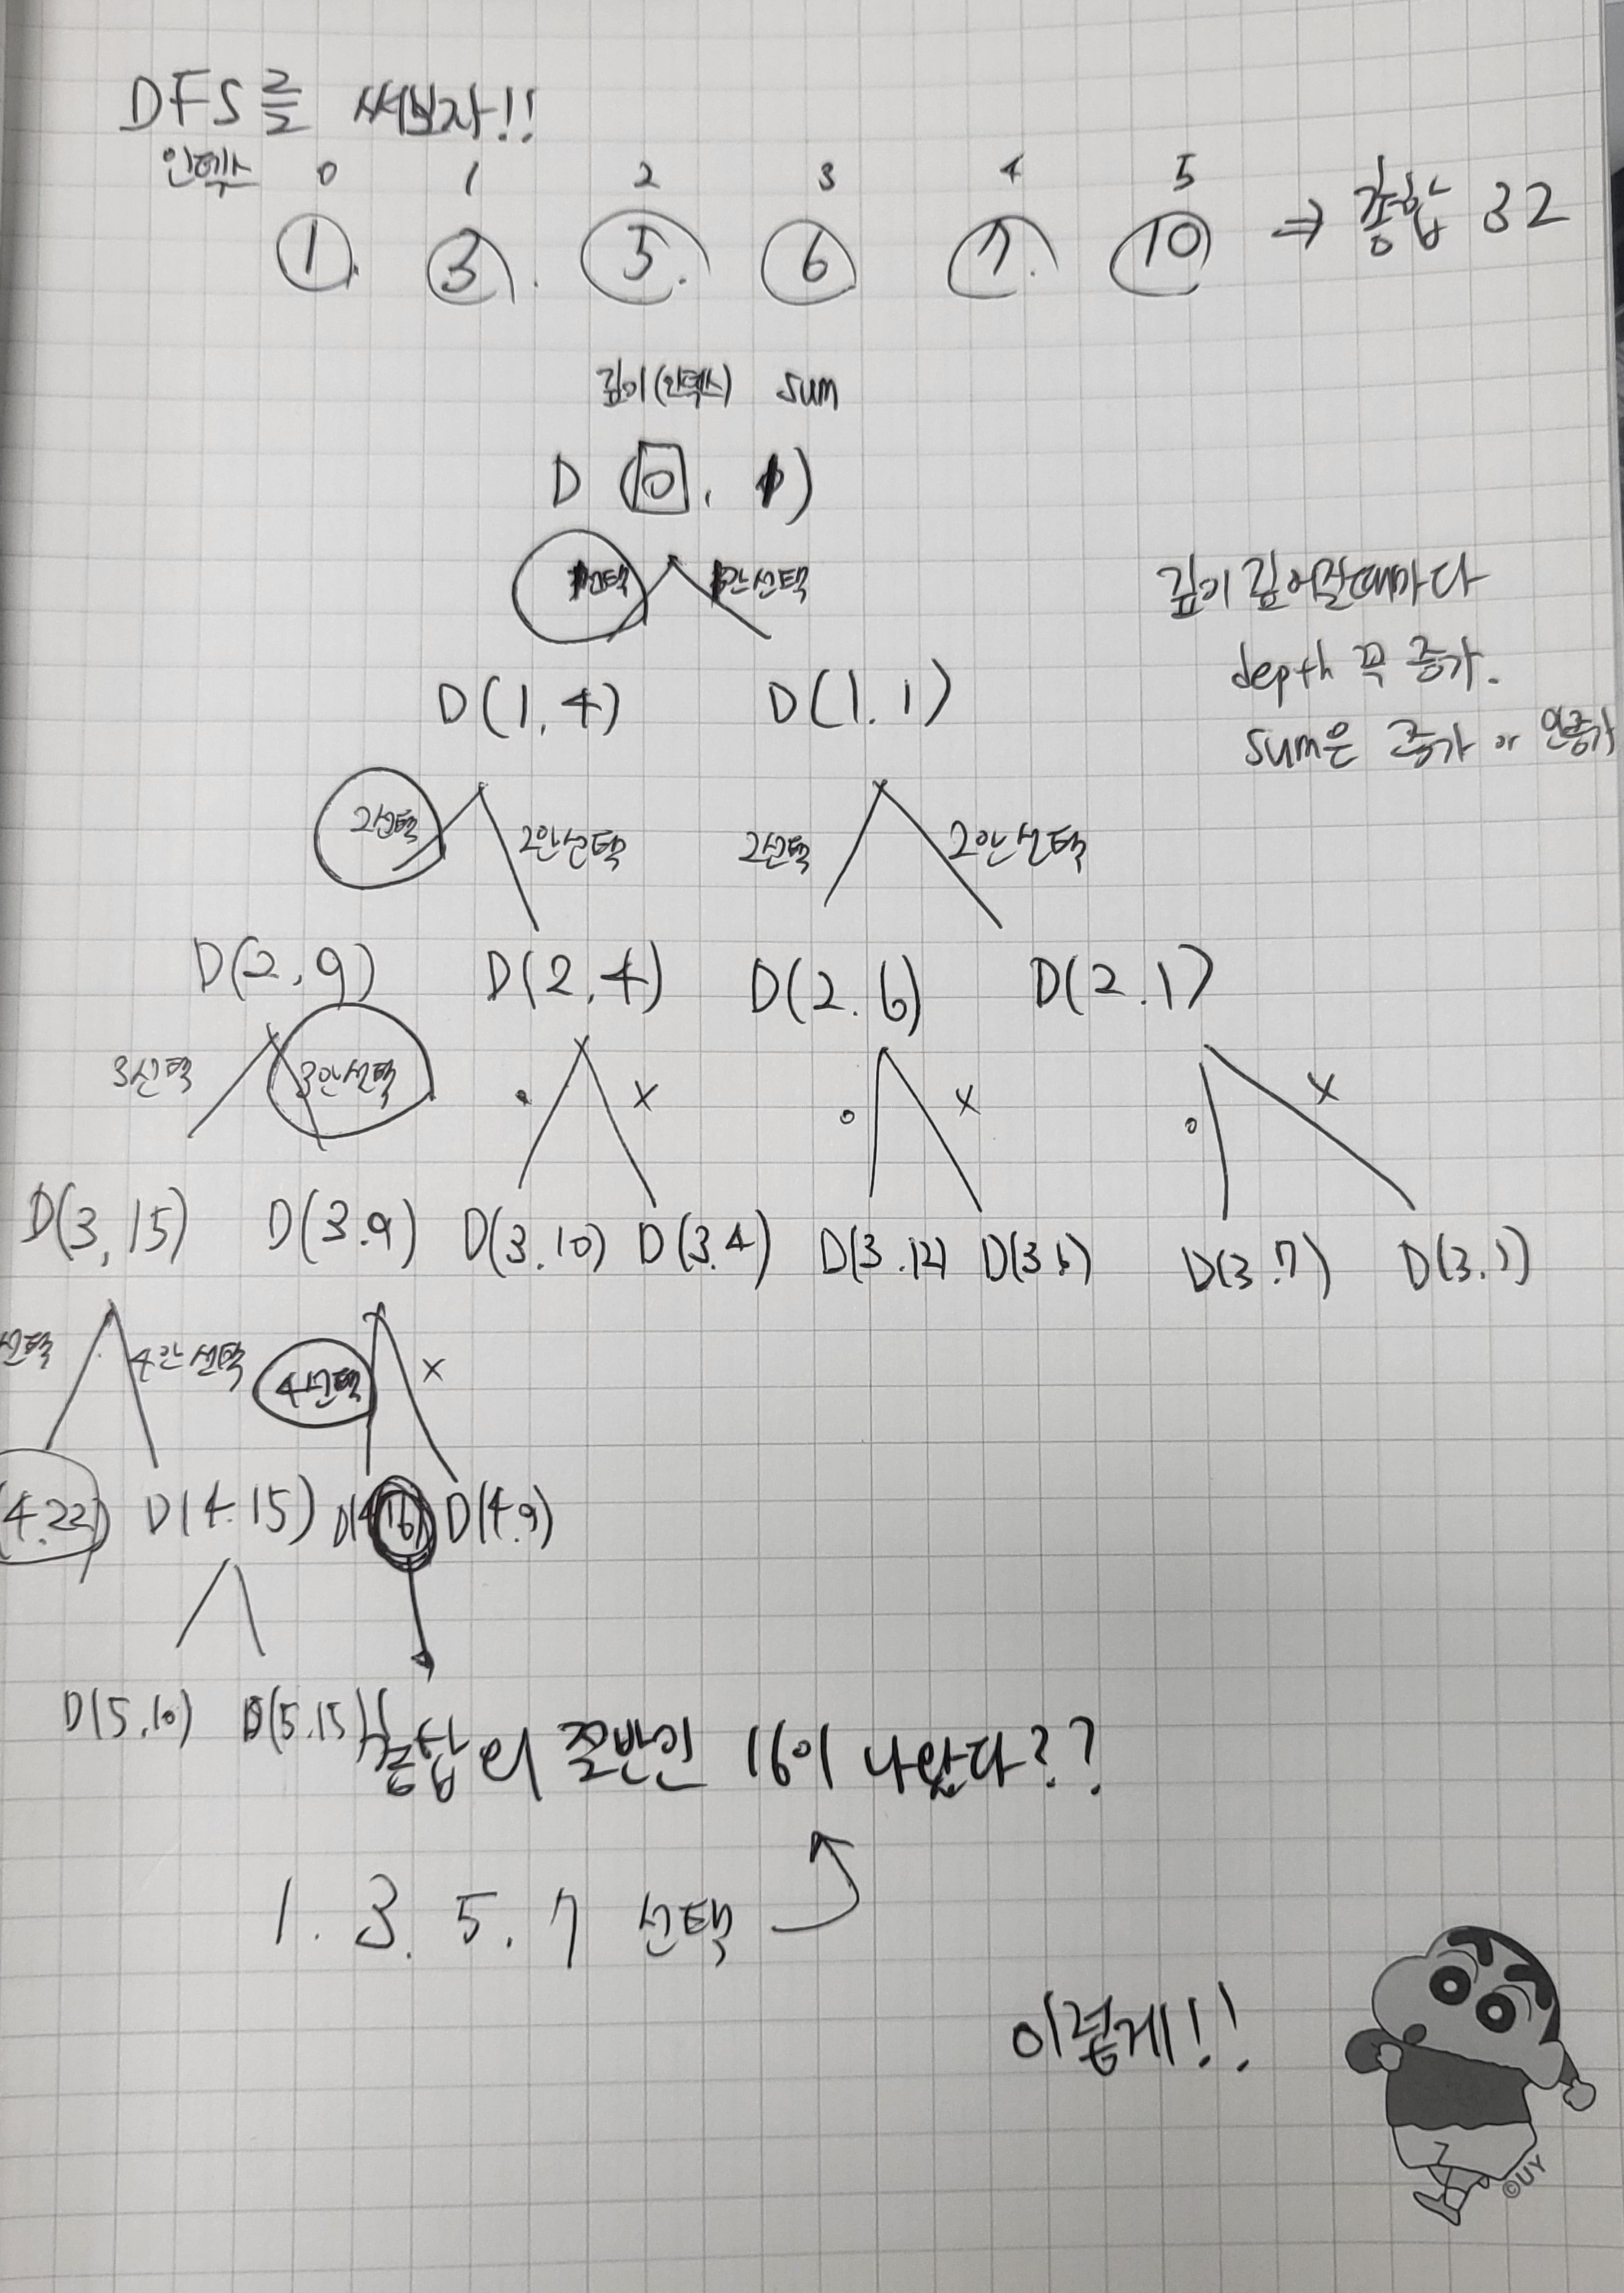 DFS를 써보자!!
인덱스 0 1 2 3 4 5
1. 3. 5. 6 7. 10 ⇒ 총합 32
깊이(인덱스) sum
D (0. 1)
1선택 1안선택
깊이 깊어질때마다
depth 꼭 증가.
sum은 증가 or 안증가
D(1, 4) D(1. 1)
2선택 2안선택 2선택 2안선택
D(2, 9) D(2, 4) D(2. 6) D(2. 1)
3선택 3안선택 o x o x o x
D(3, 15) D(3.9) D(3.10) D(3.4) D(3.12) D(3.6) D(3.7) D(3.1)
선택 4안선택 4선택 x
(4.22) D(4.15) D(4.16) D(4.9)
D(5.10) D(5.15)
총합의 절반인 16이 나왔다??
1. 3. 5. 7 선택
이렇게!!
©UY